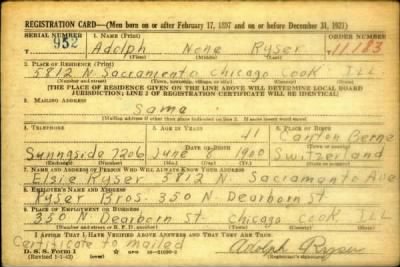 REGISTRATION CARD—(Men born on or after February 17, 1897 and on or before December 31, 1921)
SERIAL NUMBER 1. NAME (Print) ORDER NUMBER
952 Adolph None Ryser 11,183
(First) (Middle) (Last)
2. PLACE OF RESIDENCE (Print)
5812 N Sacramento Chicago Cook ILL
(Number and street) (Town, township, village, or city) (County) (State)
[THE PLACE OF RESIDENCE GIVEN ON THE LINE ABOVE WILL DETERMINE LOCAL BOARD
JURISDICTION; LINE 2 OF REGISTRATION CERTIFICATE WILL BE IDENTICAL]
3. MAILING ADDRESS
Same
[Mailing address if other than place indicated on line 2. If same insert word same]
4. TELEPHONE 5. AGE IN YEARS 6. PLACE OF BIRTH
41 Canton Berne
DATE OF BIRTH
Sunnyside 7206 June 1900 Switzerland
(Exchange) (Number) (Mo.) (Day) (Yr.) (State or country)
7. NAME AND ADDRESS OF PERSON WHO WILL ALWAYS KNOW YOUR ADDRESS
Elsie Ryser 5812 N. Sacramento Ave
8. EMPLOYER'S NAME AND ADDRESS
Ryser Bros. 350 N Dearborn St
9. PLACE OF EMPLOYMENT OR BUSINESS
350 N Dearborn St Chicago Cook ILL
(Number and street or R. F. D. number) (Town) (County) (State)
I AFFIRM THAT I HAVE VERIFIED ABOVE ANSWERS AND THAT THEY ARE TRUE.
Certificate to mailed
D. S. S. Form 1 Adolph Ryser
(Revised 1-1-42) (over)